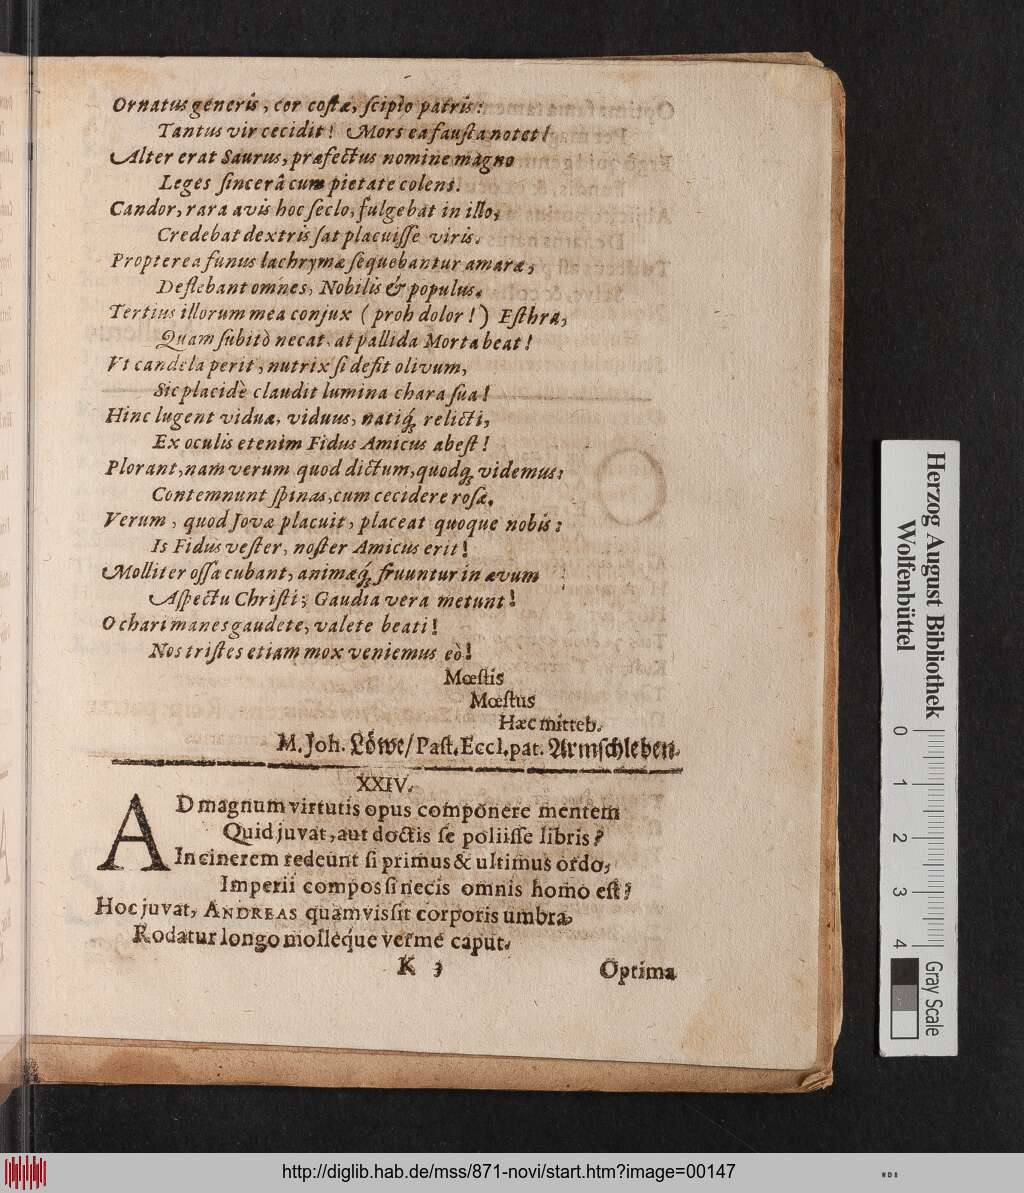 Ornatus generis, cor costæ, scipio patris:
Tantus vir cecidit! Mors ea fausta notet!
Alter erat Saurus, præfectus nomine magno
Leges sincerâ cum pietate colens.
Candor, rara avis hoc seclo, fulgebat in illo,
Credebat dextris sat placuisse viris.
Propterea funus lachrymæ sequebantur amaræ,
Deflebant omnes, Nobilis & populus.
Tertius illorum mea conjux (proh dolor!) Esthra,
Quam subitò necat, at pallida Morta beat!
Vt candela perit, nutrix si desit olivum,
Sic placidè claudit lumina chara sua!
Hinc lugent viduæ, viduus, natiq́; relicti,
Ex oculis etenim Fidus Amicus abest!
Plorant, nam verum quod dictum, quodq; videmus:
Contemnunt spinas, cum cecidere rosæ.
Verum, quod Jovæ placuit, placeat quoque nobis:
Is Fidus vester, noster Amicus erit!
Molliter ossa cubant, animæq́; fruuntur in ævum
Aspectu Christi; Gaudia vera metunt!
O chari manes gaudete, valete beati!
Nos tristes etiam mox veniemus eò!
Mœstis
Mœstus
Hæc mitteb.
M. Joh. Löwe/ Past. Eccl. pat. Armschleben.
XXIV.
AD magnum virtutis opus componere mentem
Quid juvat, aut doctis se poliisse libris?
In cinerem redeunt si primus & ultimus ordo,
Imperii compos si necis omnis homo est?
Hoc juvat, ANDREAS quamvis sit corporis umbra,
Rodatur longo mosleque verme caput.
K 3
Optima
Herzog August Bibliothek
Wolfenbüttel
0 1 2 3 4
Gray Scale
http://diglib.hab.de/mss/871-novi/start.htm?image=00147
WDB